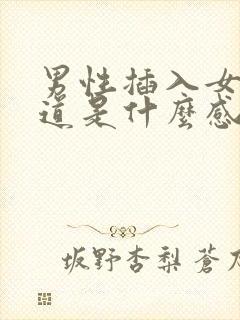 男性插入女
道是什麼感
坂野杏梨蒼